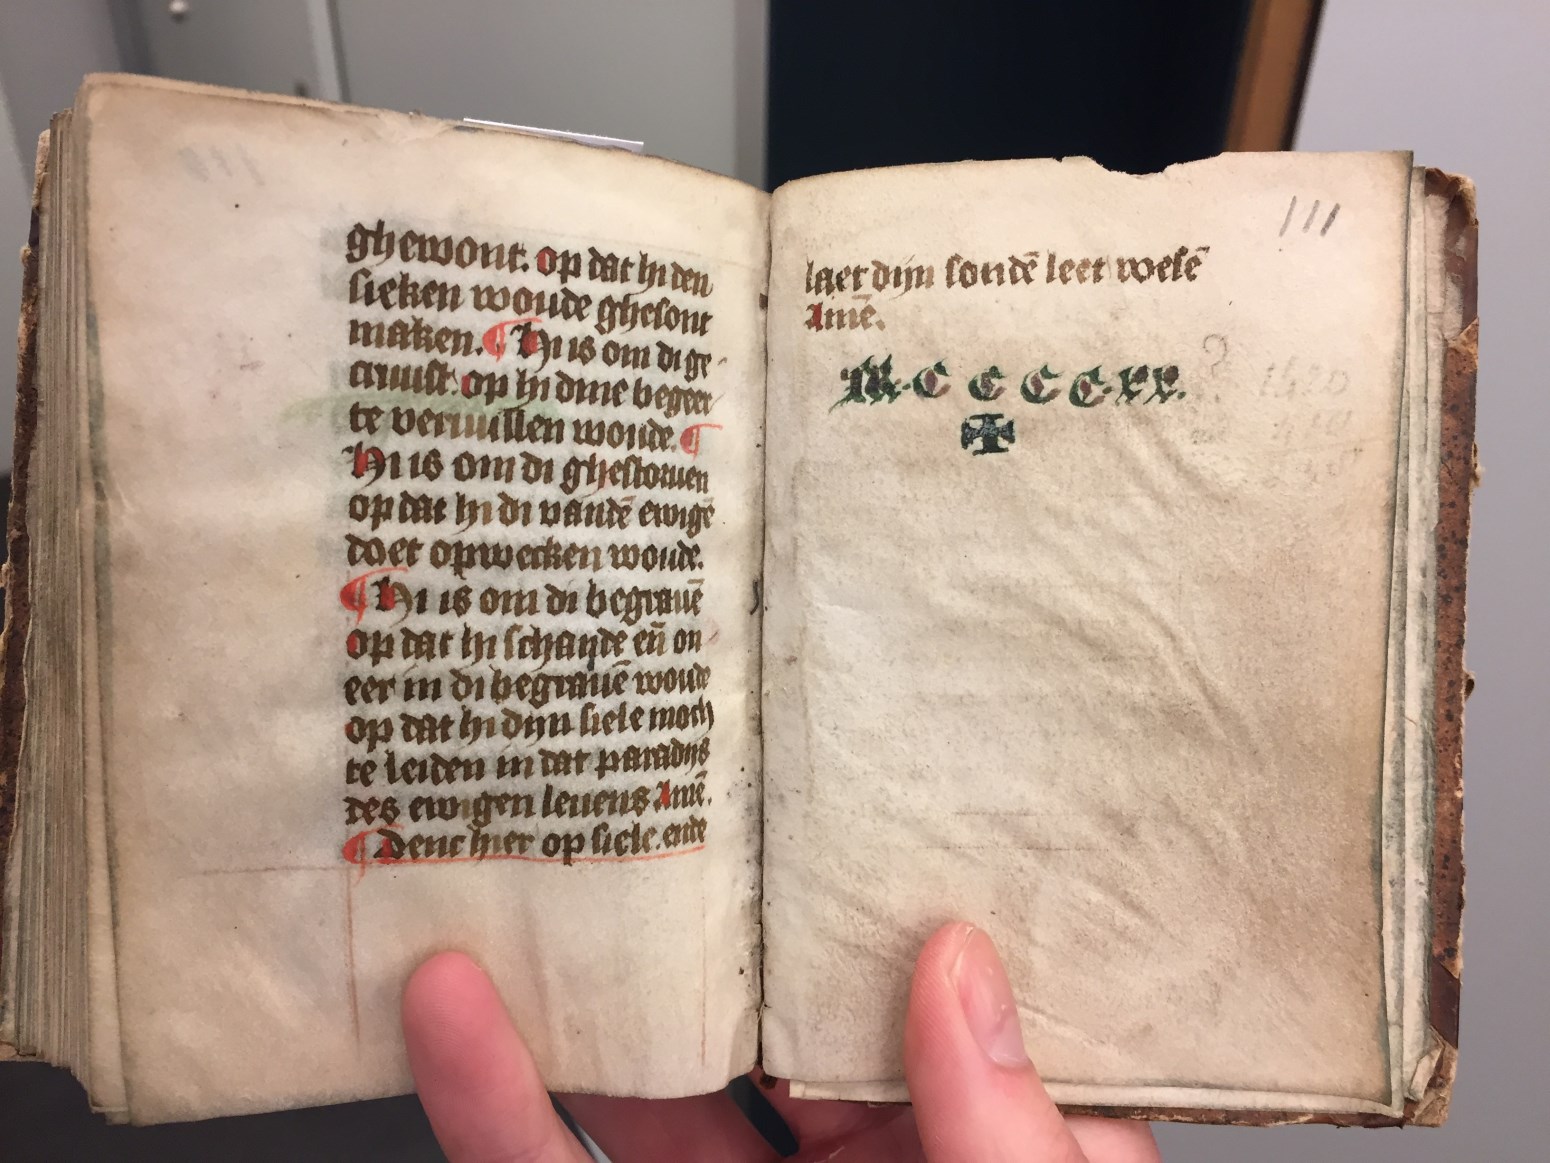 ghewont. Op dat hi den
sieken woude ghesont
maken. ¶ Hi is om di ge
cruust. op hi dine begeer
te vernullen woude. ¶
Hi is om di ghestoruen
op dat hi di vandē ewigē
doet opwecken woude.
¶ Hi is om di begrauē
op dat hi schande eñ on
eer in di begrauē woude
op dat hi dijn siele moch
te leiden in dat paradijs
des ewigen leuens Amē.
¶ Denc hier op siele. ende
111
laet dijn sondē leet wesē
Amē.
M.C C C C.XX.
? 1420